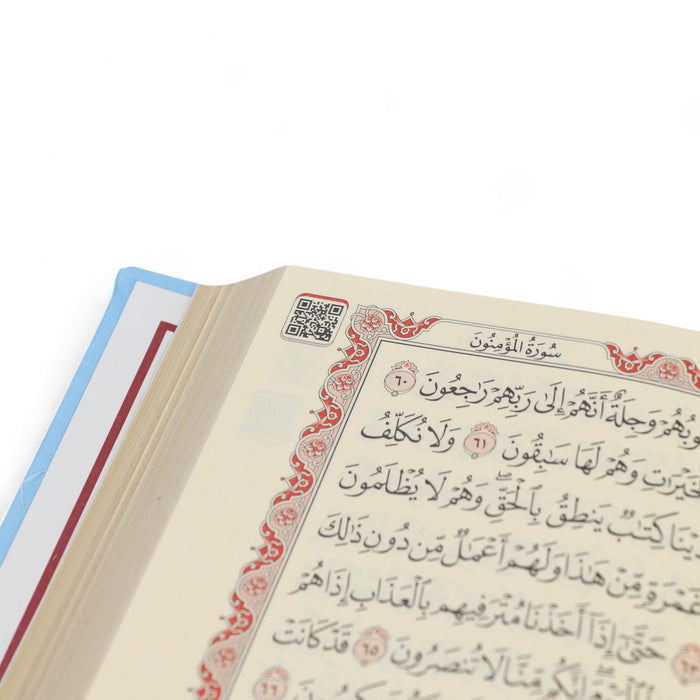 سُورَةُ المُؤْمِنُونَ
وَجِلَةٌ أَنَّهُمْ إِلَىٰ رَبِّهِمْ رَٰجِعُونَ ٦٠
وَهُمْ لَهَا سَٰبِقُونَ ٦١ وَلَا نُكَلِّفُ
كِتَٰبٌ يَنطِقُ بِٱلْحَقِّ وَهُمْ لَا يُظْلَمُونَ
مِّنْ هَٰذَا وَلَهُمْ أَعْمَٰلٌ مِّن دُونِ ذَٰلِكَ
حَتَّىٰٓ إِذَآ أَخَذْنَا مُتْرَفِيهِم بِٱلْعَذَابِ إِذَا هُمْ
مِّنَّا لَا تُنصَرُونَ ٦٥ قَدْ كَانَتْ
٦٦